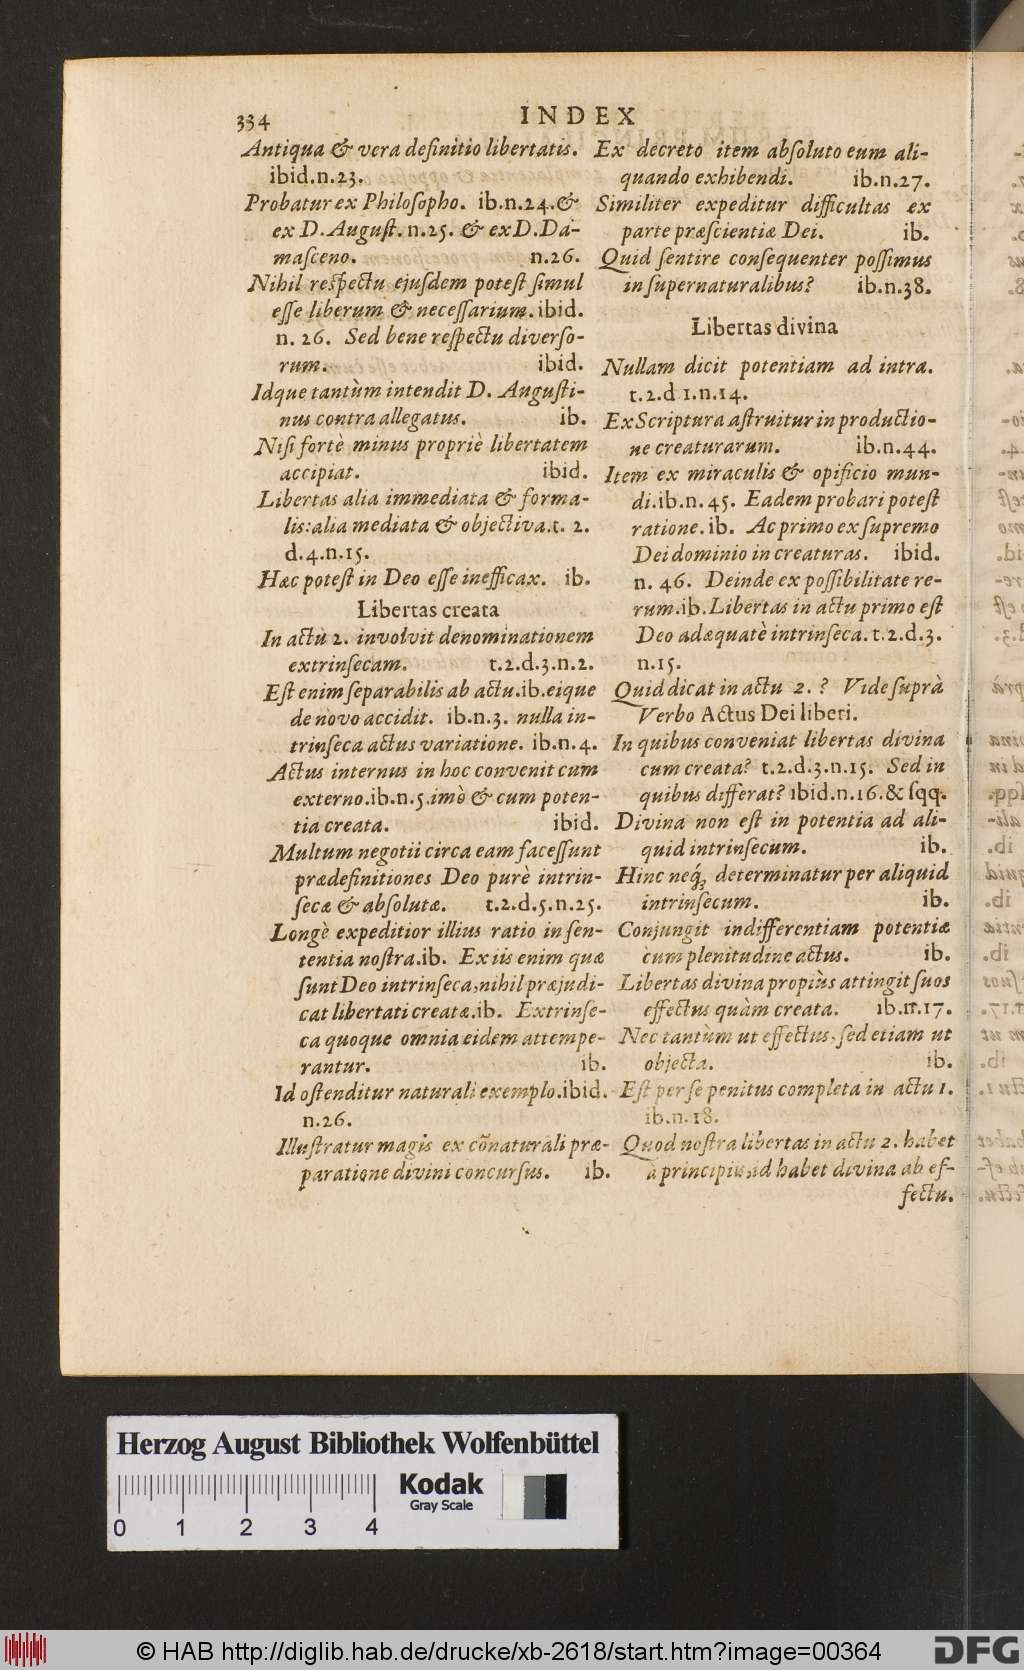 334
INDEX
Antiqua & vera definitio libertatis.
ibid.n.23.
Probatur ex Philoſopho. ib.n.24.&
ex D. Auguſt. n.25. & ex D. Da-
maſceno. n.26.
Nihil reſpectu ejuſdem poteſt ſimul
eſſe liberum & neceſſarium. ibid.
n. 26. Sed bene reſpectu diverſo-
rum. ibid.
Idque tantùm intendit D. Auguſti-
nus contra allegatus. ib.
Niſi fortè minus propriè libertatem
accipiat. ibid.
Libertas alia immediata & forma-
lis: alia mediata & objectiva. t. 2.
d.4.n.15.
Hæc poteſt in Deo eſſe inefficax. ib.
Libertas creata
In actu 2. involvit denominationem
extrinſecam. t.2.d.3.n.2.
Eſt enim ſeparabilis ab actu. ib. eique
de novo accidit. ib.n.3. nulla in-
trinſeca actus variatione. ib.n.4.
Actus internus in hoc convenit cum
externo. ib.n.5. imò & cum poten-
tia creata. ibid.
Multum negotii circa eam faceſſunt
prædefinitiones Deo purè intrin-
ſecæ & abſolutæ. t.2.d.5.n.25.
Longè expeditior illius ratio in ſen-
tentia noſtra. ib. Ex iis enim quæ
ſunt Deo intrinſeca, nihil præjudi-
cat libertati creatæ. ib. Extrinſe-
ca quoque omnia eidem attempe-
rantur. ib.
Id oſtenditur naturali exemplo. ibid.
n.26.
Illuſtratur magis ex cõnaturali præ-
paratione divini concurſus. ib.
Ex decreto item abſoluto eum ali-
quando exhibendi. ib.n.27.
Similiter expeditur difficultas ex
parte præſcientiæ Dei. ib.
Quid ſentire conſequenter poſſimus
in ſupernaturalibus? ib.n.38.
Libertas divina
Nullam dicit potentiam ad intra.
t.2.d 1.n.14.
Ex Scriptura aſtruitur in productio-
ne creaturarum. ib.n.44.
Item ex miraculis & opificio mun-
di. ib.n. 45. Eadem probari poteſt
ratione. ib. Ac primo ex ſupremo
Dei dominio in creaturas. ibid.
n. 46. Deinde ex poſſibilitate re-
rum. ib. Libertas in actu primo eſt
Deo adæquatè intrinſeca. t.2.d.3.
n.15.
Quid dicat in actu 2. ? Vide ſuprà
Verbo Actus Dei liberi.
In quibus conveniat libertas divina
cum creata? t.2.d.3.n.15. Sed in
quibus differat? ibid.n.16.& ſqq.
Divina non eſt in potentia ad ali-
quid intrinſecum. ib.
Hinc neq; determinatur per aliquid
intrinſecum. ib.
Conjungit indifferentiam potentiæ
cum plenitudine actus. ib.
Libertas divina propiùs attingit ſuos
effectus quàm creata. ib.n.17.
Nec tantùm ut effectus, ſed etiam ut
objecta. ib.
Eſt per ſe penitus completa in actu 1.
ib.n.18.
Quod noſtra libertas in actu 2. habet
à principiis, id habet divina ab ef-
fectu.
Herzog August Bibliothek Wolfenbüttel
Kodak
Gray Scale
0 1 2 3 4
© HAB http://diglib.hab.de/drucke/xb-2618/start.htm?image=00364
DFG